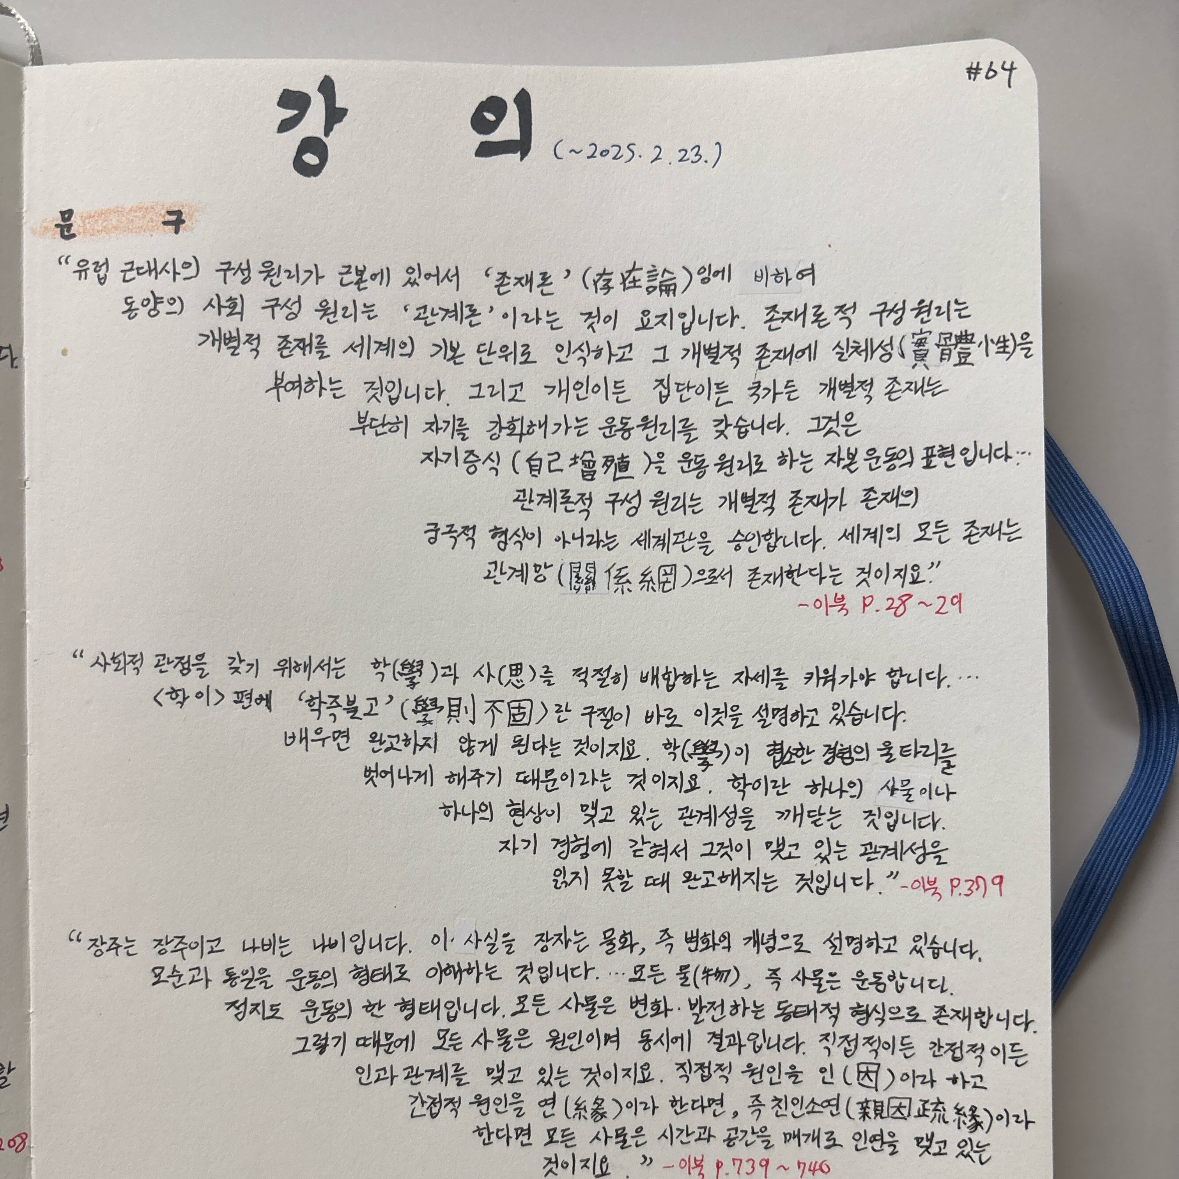 #64
강 의 (~2025.2.23.)
문 구
“유럽 근대사의 구성 원리가 근본에 있어서 ‘존재론’(存在論)임에 비하여
동양의 사회 구성 원리는 ‘관계론’이라는 것이 요지입니다. 존재론적 구성원리는
개별적 존재를 세계의 기본 단위로 인식하고 그 개별적 존재에 실체성(實體性)을
부여하는 것입니다. 그리고 개인이든 집단이든 국가든 개별적 존재는
부단히 자기를 강화해가는 운동원리를 갖습니다. 그것은
자기증식(自己增殖)을 운동원리로 하는 자본운동의 표현입니다…
관계론적 구성 원리는 개별적 존재가 존재의
궁극적 형식이 아니라는 세계관을 승인합니다. 세계의 모든 존재는
관계망(關係網)으로서 존재한다는 것이지요.”
-이북 P.28~29
“사회적 관점을 갖기 위해서는 학(學)과 사(思)를 적절히 배합하는 자세를 키워가야 합니다.…
<학이>편에 ‘학즉불고’(學則不固)란 구절이 바로 이것을 설명하고 있습니다.
배우면 완고하지 않게 된다는 것이지요. 학(學)이 협소한 경험의 울타리를
벗어나게 해주기 때문이라는 것이지요. 학이란 하나의 사물이나
하나의 현상이 맺고 있는 관계성을 깨닫는 것입니다.
자기 경험에 갇혀서 그것이 맺고 있는 관계성을
읽지 못할 때 완고해지는 것입니다.” -이북 P.379
“장주는 장주이고 나비는 나비입니다. 이 사실을 장자는 물화, 즉 변화의 개념으로 설명하고 있습니다.
모순과 통일을 운동의 형태로 이해하는 것입니다.…모든 물(物), 즉 사물은 운동합니다.
정지도 운동의 한 형태입니다. 모든 사물은 변화·발전하는 동태적 형식으로 존재합니다.
그렇기 때문에 모든 사물은 원인이며 동시에 결과입니다. 직접적이든 간접적이든
인과관계를 맺고 있는 것이지요. 직접적 원인을 인(因)이라 하고
간접적 원인을 연(緣)이라 한다면, 즉 친인소연(親因疏緣)이라
한다면 모든 사물은 시간과 공간을 매개로 인연을 맺고 있는
것이지요.” -이북 P.739~740
다.
할
208